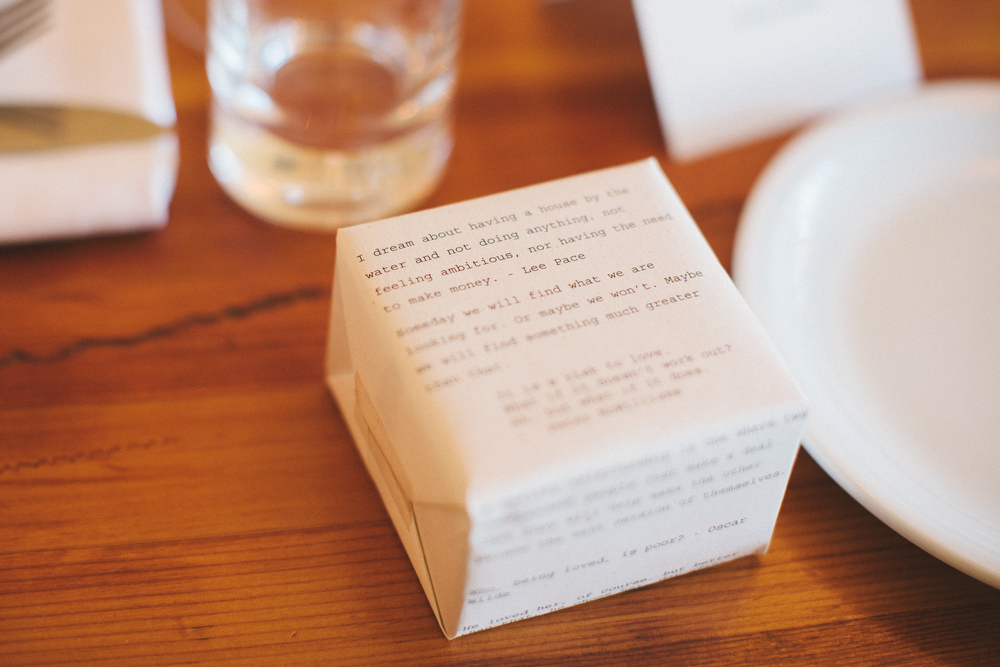 I dream about having a house by the
water and not doing anything, not
feeling ambitious, nor having the need
to make money. - Lee Pace
Someday we will find what we are
looking for. Or maybe we won't. Maybe
we will find something much greater
than that
It is a risk to love.
What if it doesn't work out?
Ah, but what if it does.
Peter McWilliams
is one where two
people make a deal
will help make the other
the best version of themselves.
Who, being loved, is poor? - Oscar
Wilde
He loved her, of course, but better